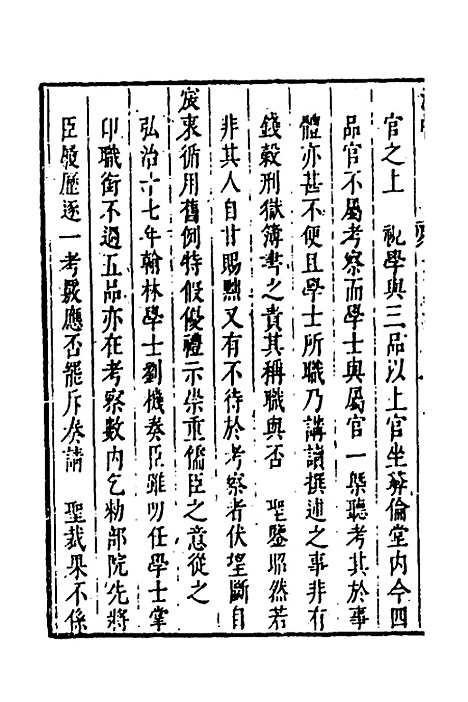 官之上　視學與三品以上官坐彞倫堂內今四
品官不屬考察而學士與屬官一槩聽考其於事
體亦甚不便且學士所職乃講讀撰述之事非有
錢穀刑獄簿書之責其稱職與否　聖鑒昭然若
非其人自甘賜黜又有不待於考察者伏望斷自
宸衷循用舊例特假優禮示崇重儒臣之意從之
弘治十七年翰林學士劉機奏臣雖叨任學士掌
印職銜不過五品亦在考察數內乞勑部院先將
臣履歷逐一考覈應否罷斥奏請　聖裁果不係